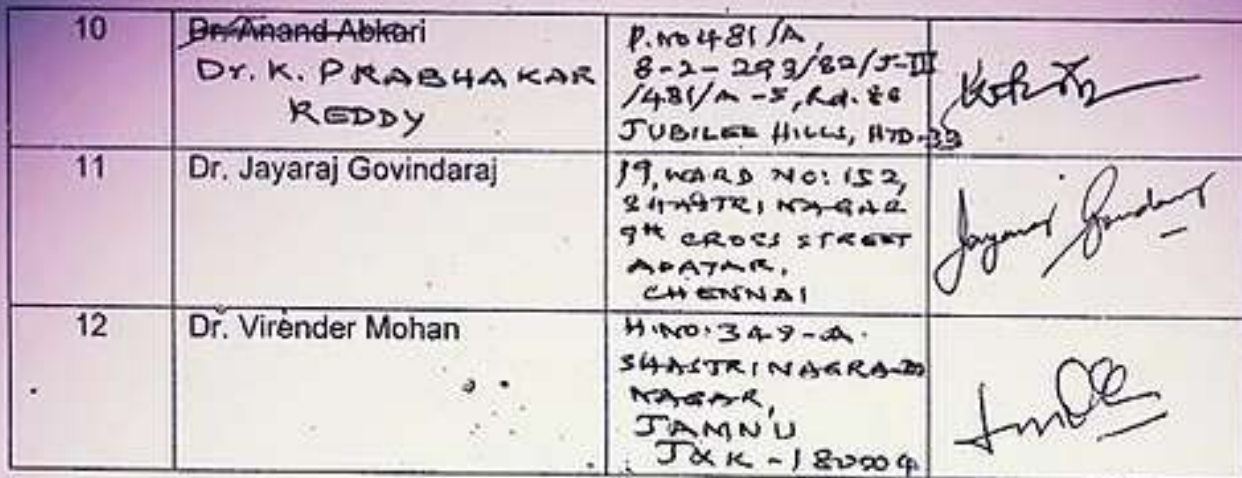 10
Dr. Anand Abkari
Dr. K. PRABHAKAR
REDDY
P.No 481/A,
8-2-293/82/J-III
/481/A-5, Rd. 86
JUBILEE HILLS, HYD-33
11
Dr. Jayaraj Govindaraj
19, WARD NO: 152,
SHASTRI NAGAR
9th CROSS STREET
ADAYAR,
CHENNAI
Jayaraj
12
Dr. Virender Mohan
H.NO: 349-A.
NAGAR,
JAMNU
J&K-180004